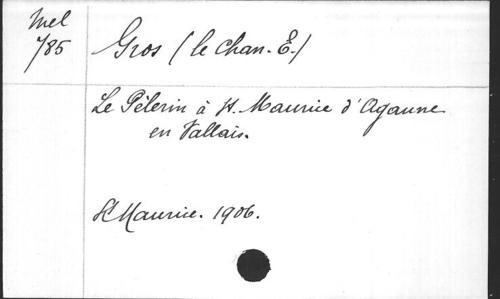 Mel
785
Gros (le Chan. E.)
Le Pèlerin à St. Maurice d'Agaune
en Vallais.
St Maurice. 1906.